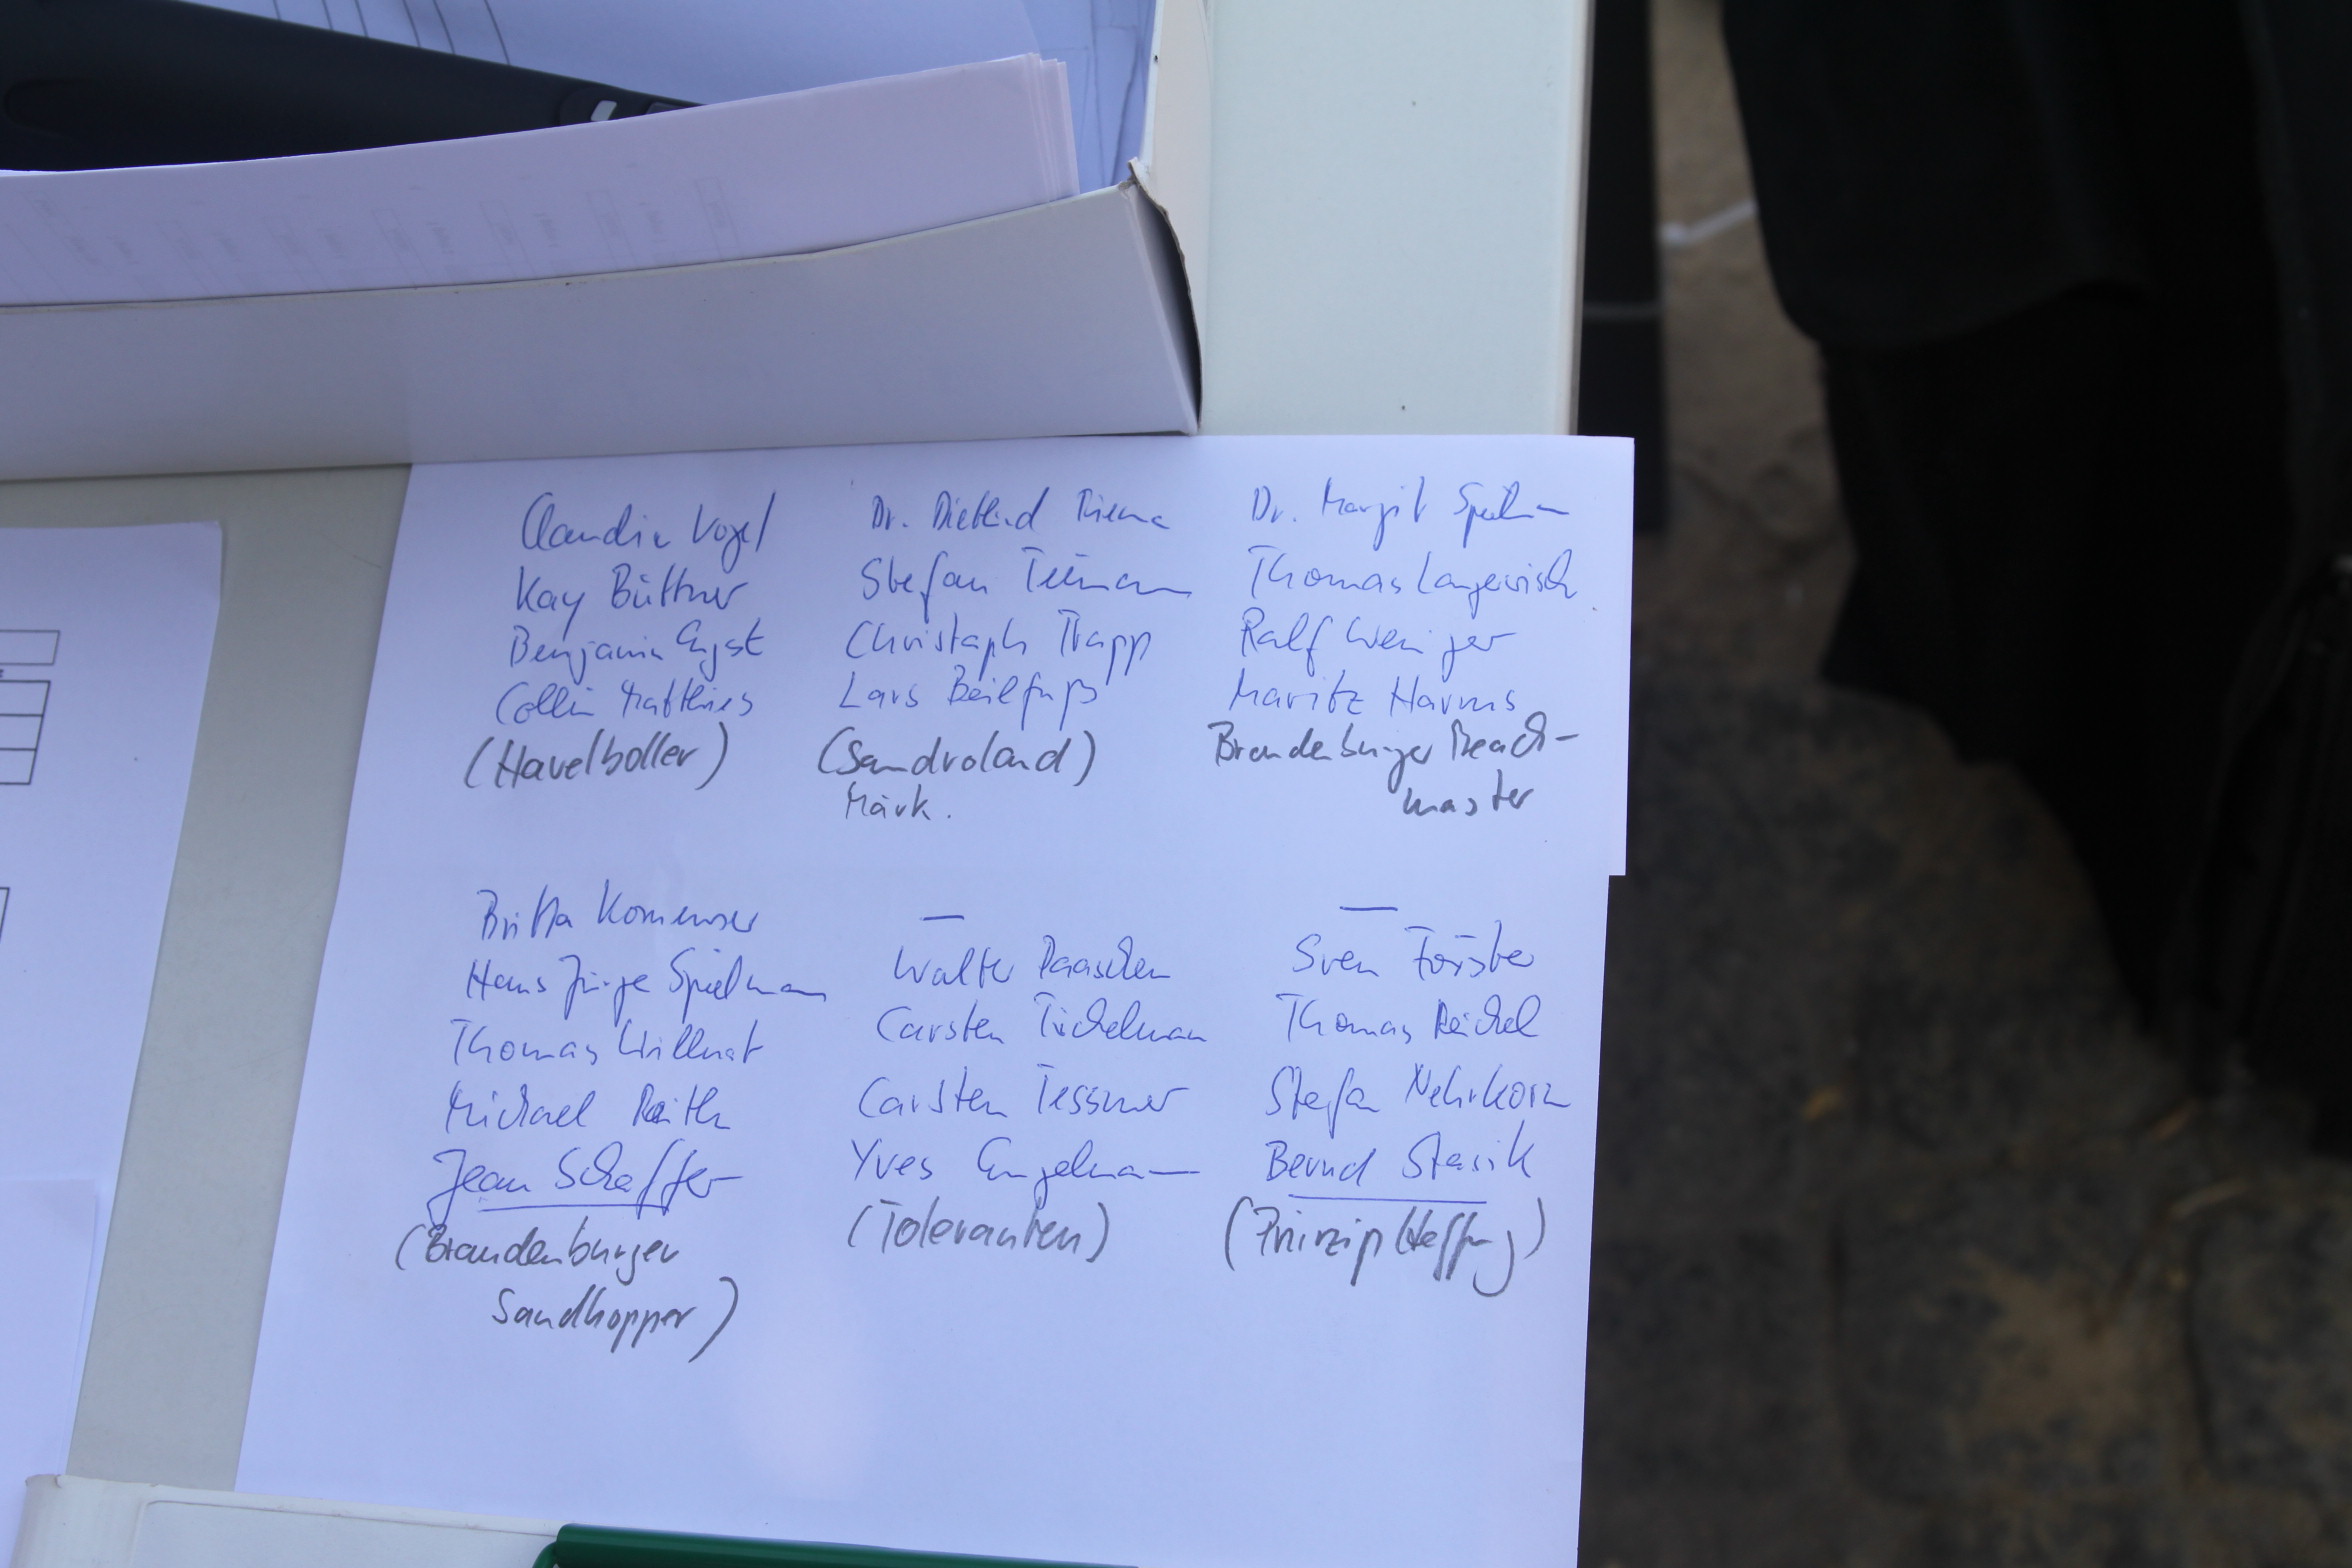 Claudia Vogel
Kay Büttner
Benjamin
Collin Matthies
(Havelboller)
Dr. Dietlind Tiema
Stefan
Christoph Trapp
Lars Beilfuß
(Sandroland)
Märk.
Dr. Margit
Thomas Langerwisch
Ralf Weniger
Moritz Harms
Brandenburger Beach-
master
Britta Kornmesser
Hans Jürge Spielmann
Thomas Willnat
Michael
Jean Schaffer
(Brandenburger
Sandhopper)
—
Walter Paaschen
Carsten Tichelmann
Carsten Tessmer
Yves Engelmann
(Toleranten)
—
Sven Förster
Thomas Reichel
Stefan Nehrkorn
Bernd Stasik
(Prinzip Hoffnung)